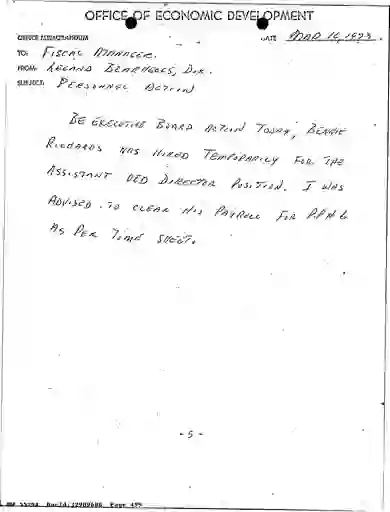 OFFICE OF ECONOMIC DEVELOPMENT
OFFICE MEMORANDUM
DATE MAR 16, 1973
TO: FISCAL MANAGER.
FROM: LELAND BEARHEELS, DIR.
SUBJECT: PERSONNEL ACTION
BE EXECUTIVE BOARD ACTION TODAY, BENNIE
RICHARDS WAS HIRED TEMPORARILY FOR THE
ASSISTANT OED DIRECTOR POSITION. I WAS
ADVISED TO CLEAR HIS PAYROLL FOR
AS PER TIME SHEET.
- 5 -
Page 499